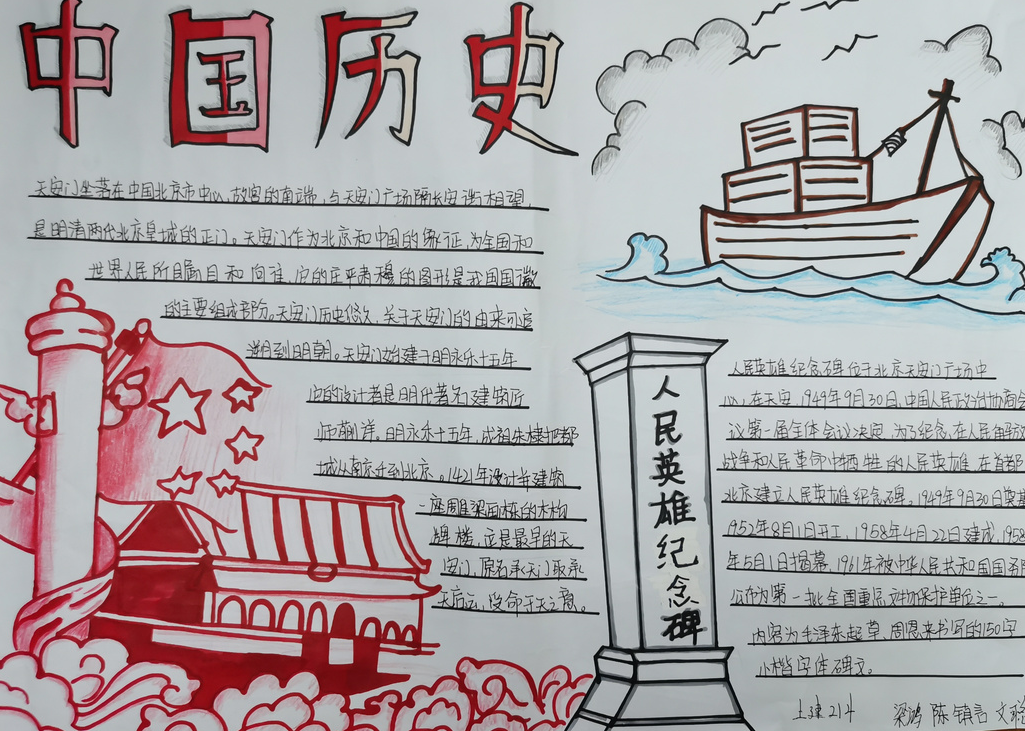 中国历史
天安门坐落在中国北京市中心,故宫的南端,与天安门广场隔长安街相望,
是明清两代北京皇城的正门。天安门作为北京和中国的象征,为全国和
世界人民所瞩目和向往,它的庄严肃穆的图形是我国国徽
的主要组成部份。天安门历史悠久,关于天安门的由来可追
溯到明朝。天安门始建于明永乐十五年
它的设计者是明代著名建筑匠
师蒯祥。明永乐十五年,成祖朱棣把都
城从南京迁到北京。1421年设计并建筑
一座雕梁画栋的木构
牌楼,这是最早的天
安门,原名承天门取承
天启运,受命于天之意。
人民英雄纪念碑
人民英雄纪念碑位于北京天安门广场历史
心,在天安,1949年9月30日,中国人民政治协商会
议第一届全体会议决定,为了纪念在人民解放
战争和人民革命中牺牲的人民英雄,在首都
北京建立人民英雄纪念碑,1949年9月30日奠基
1952年8月1日开工,1958年4月22日建成,1958
年5月1日揭幕,1961年被中华人民共和国国务院
公布为第一批全国重点文物保护单位之一。
内容为毛泽东起草,周恩来书写的150字
小楷字体碑文。
土建214 梁鸿 陈镇言 文